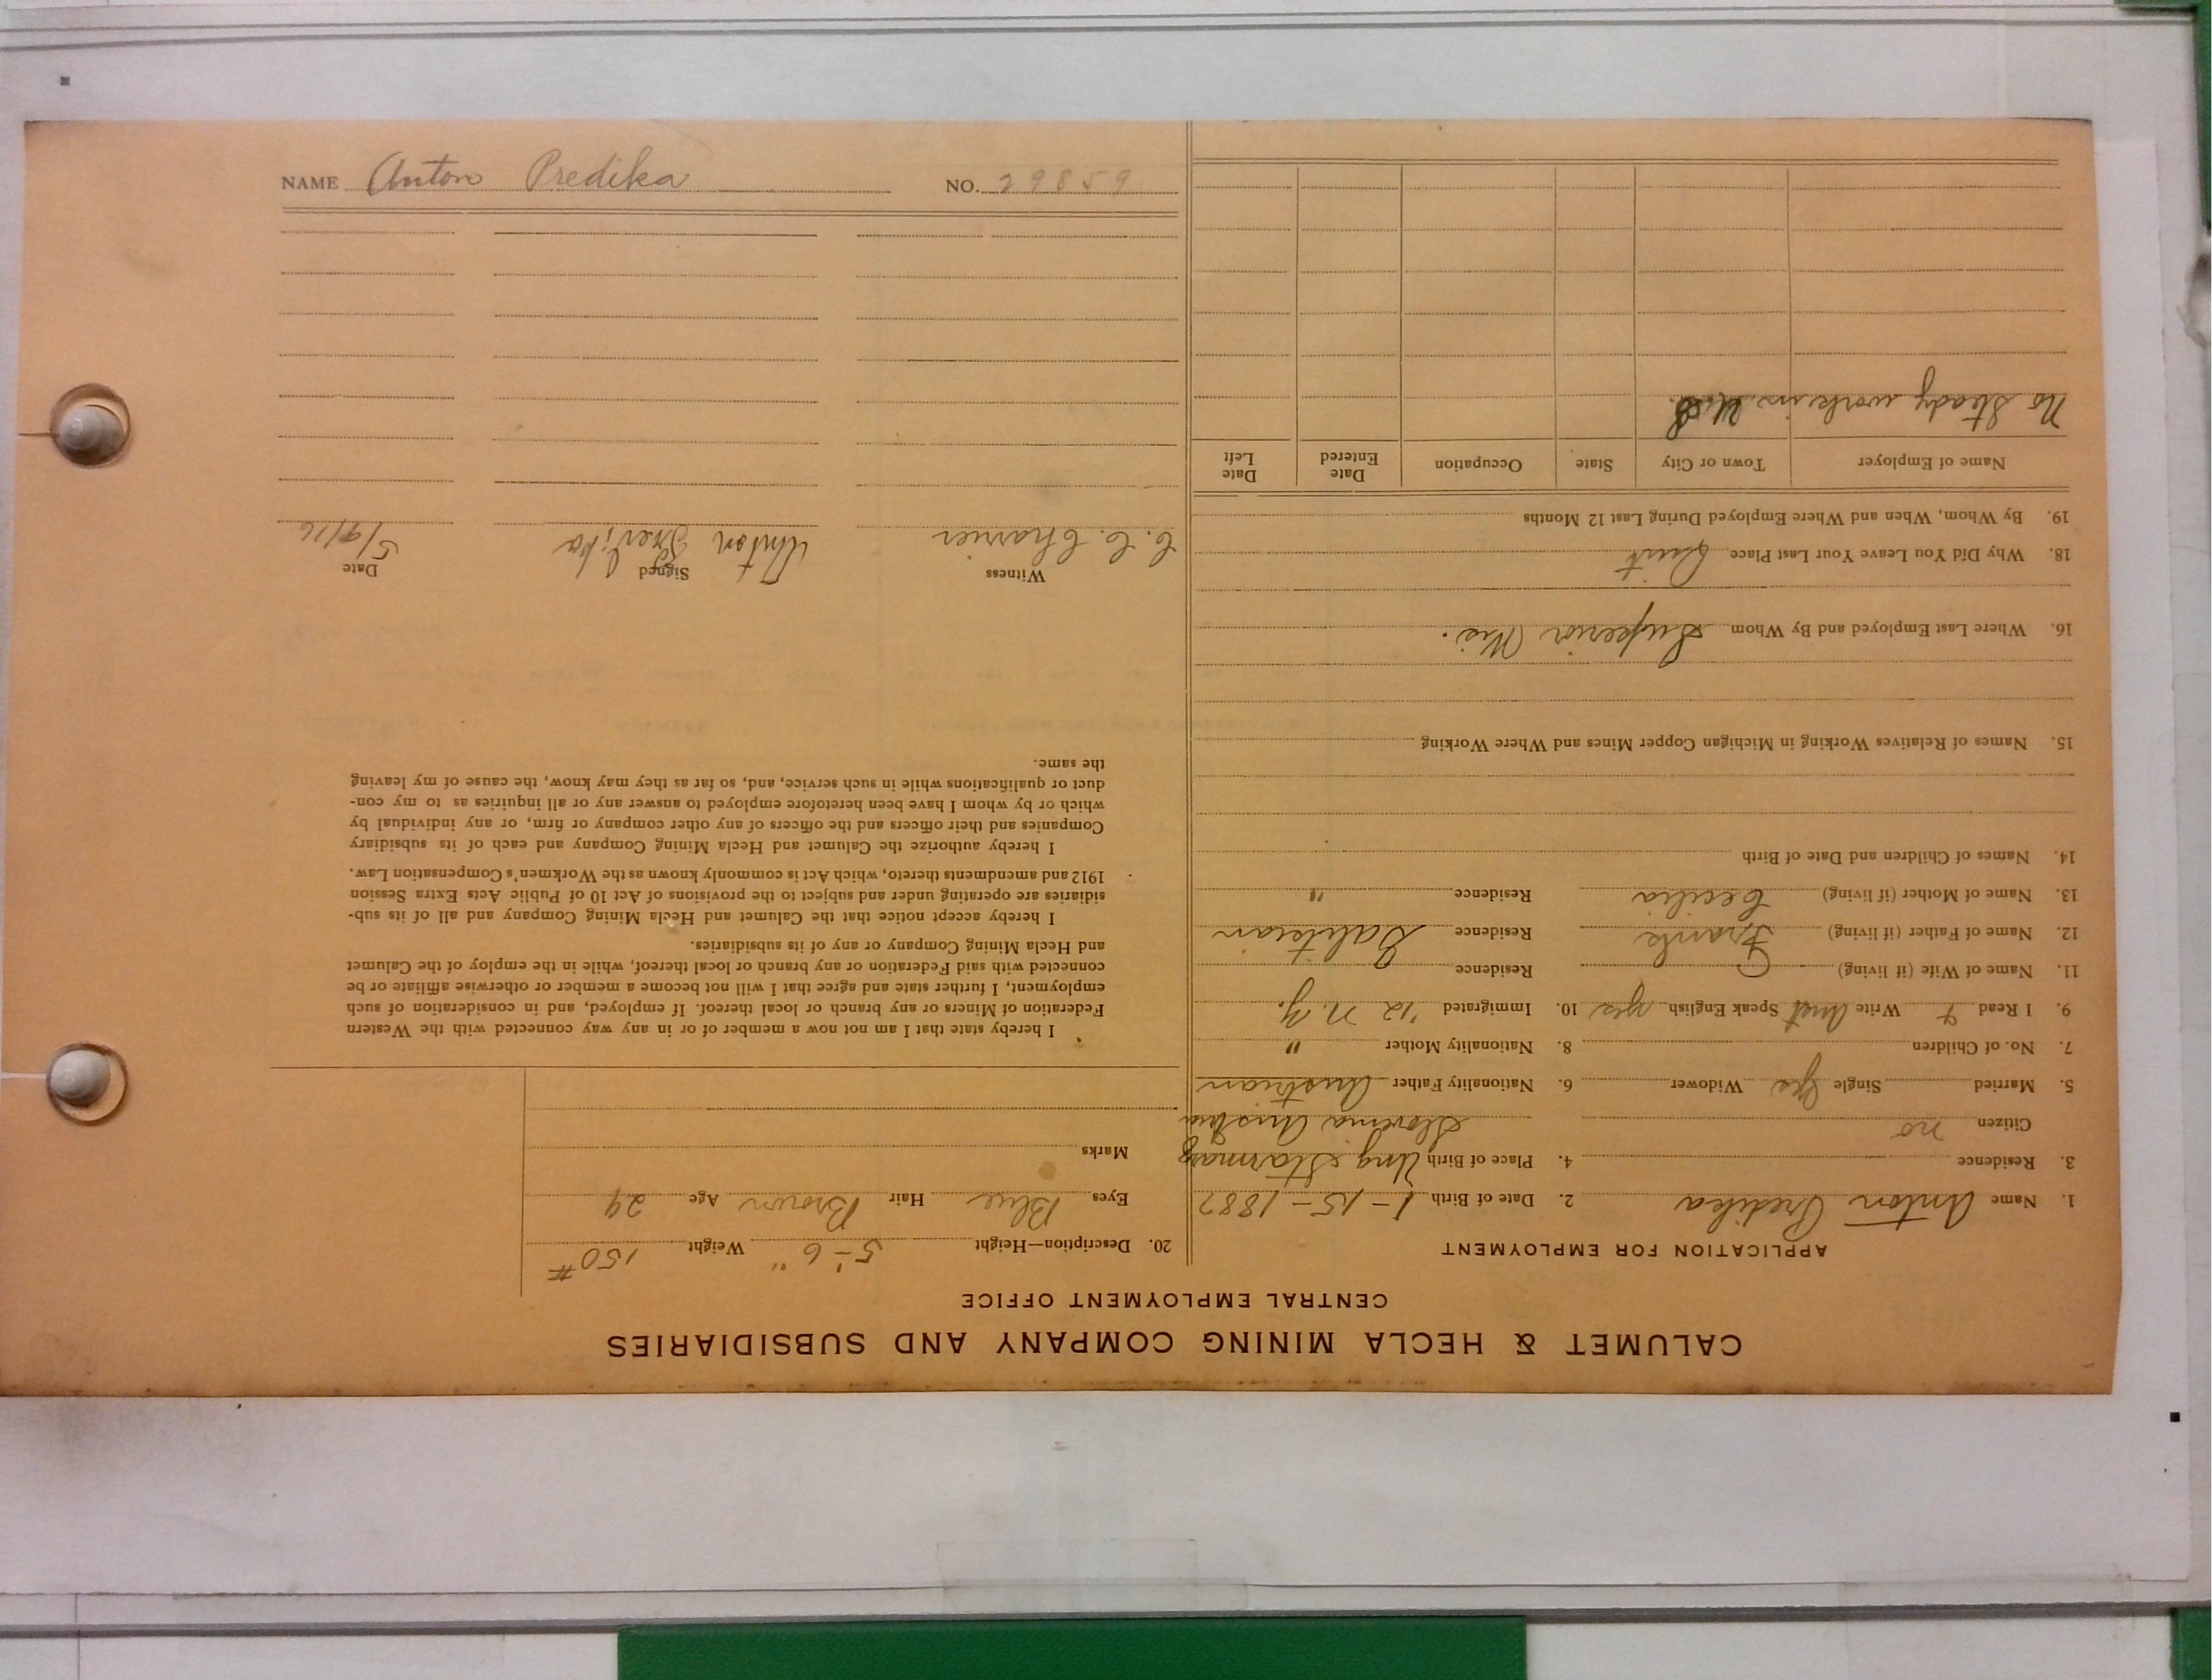 NAME Anton Predika NO. 29859
CALUMET & HECLA MINING COMPANY AND SUBSIDIARIES
CENTRAL EMPLOYMENT OFFICE
APPLICATION FOR EMPLOYMENT
1. Name Anton Predika 2. Date of Birth 1-15-1887
3. Residence 4. Place of Birth
Citizen no Austria
5. Married Single yes Widower 6. Nationality Father Austrian
7. No. of Children 8. Nationality Mother "
9. I Read + Write Aust Speak English yes 10. Immigrated '12 N.Y.
11. Name of Wife (if living) Residence
12. Name of Father (if living) Frank Residence
13. Name of Mother (if living) Cecilia Residence "
14. Names of Children and Date of Birth
15. Names of Relatives Working in Michigan Copper Mines and Where Working
16. Where Last Employed and By Whom Superior Wis.
18. Why Did You Leave Your Last Place Quit
19. By Whom, When and Where Employed During Last 12 Months
Name of Employer Town or City State Occupation Date Entered Date Left
No steady work in U.S.
20. Description—Height 5'-6" Weight 150#
Eyes Blue Hair Brown Age 29
Marks
I hereby state that I am not now a member of or in any way connected with the Western
Federation of Miners or any branch or local thereof. If employed, and in consideration of such
employment, I further state and agree that I will not become a member or otherwise affiliate or be
connected with said Federation or any branch or local thereof, while in the employ of the Calumet
and Hecla Mining Company or any of its subsidiaries.
I hereby accept notice that the Calumet and Hecla Mining Company and all of its sub-
sidiaries are operating under and subject to the provisions of Act 10 of Public Acts Extra Session
1912 and amendments thereto, which Act is commonly known as the Workmen's Compensation Law.
I hereby authorize the Calumet and Hecla Mining Company and each of its subsidiary
Companies and their officers and the officers of any other company or firm, or any individual by
which or by whom I have been heretofore employed to answer any or all inquiries as to my con-
duct or qualifications while in such service, and, so far as they may know, the cause of my leaving
the same.
Witness Signed Date
C. C. Charrier Anton 5/9/16